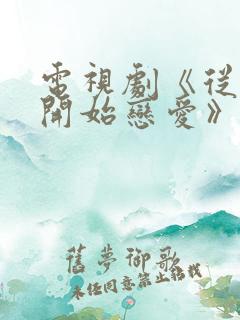 電視劇《從
開始戀愛》
舊夢御歌
未經同意禁止轉載